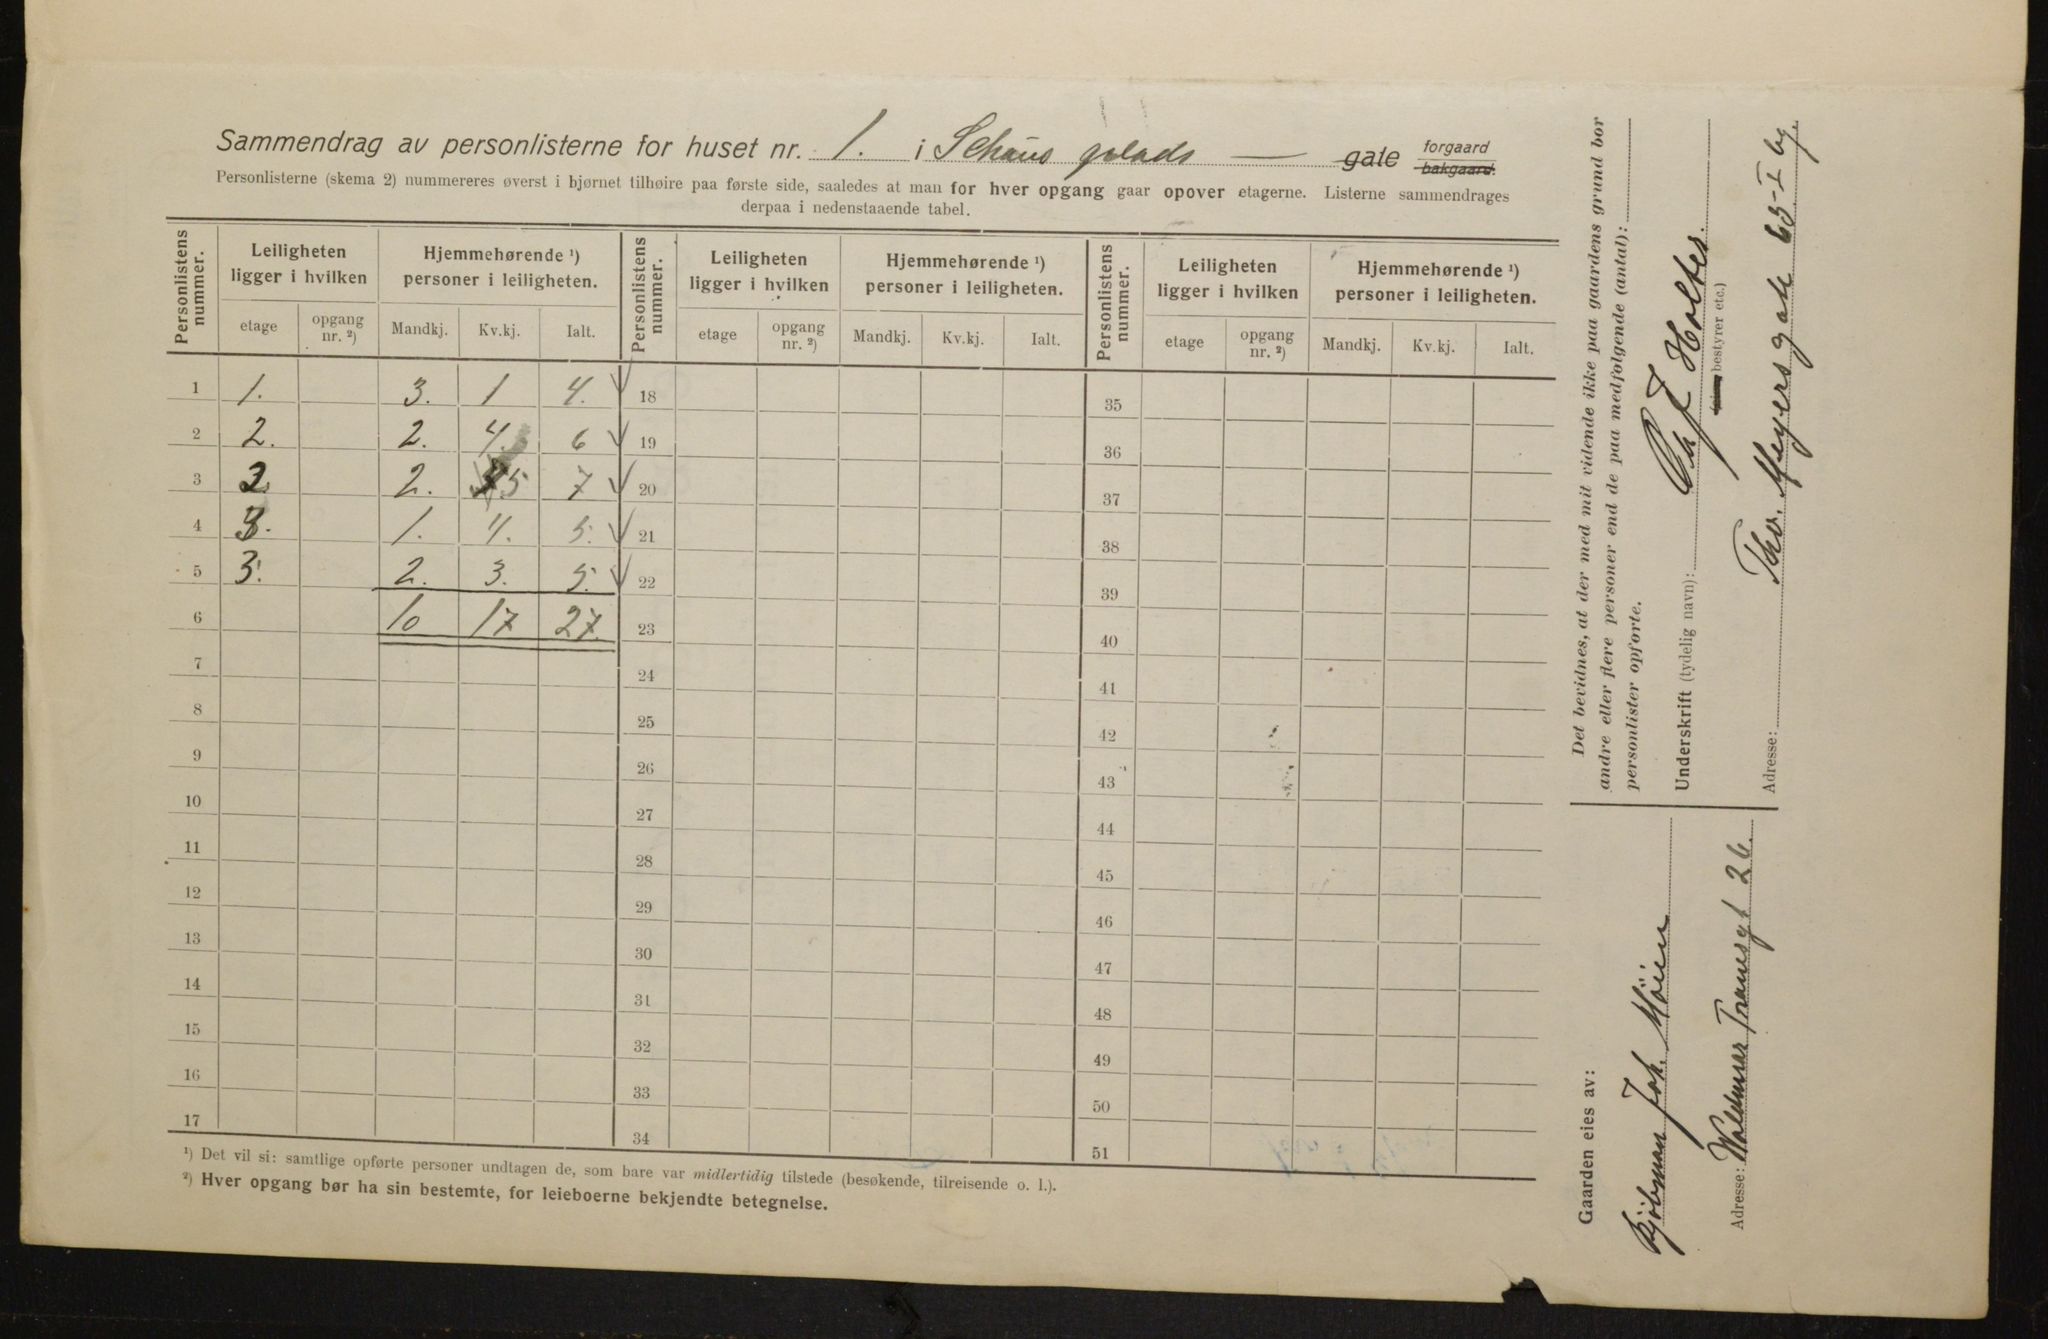 Sammendrag av personlisterne for huset nr. 1. i Schous plads — gate forgaard bakgaard.
Personlisterne (skema 2) nummereres øverst i hjørnet tilhøire paa første side, saaledes at man for hver opgang gaar opover etagerne. Listerne sammendrages
derpaa i nedenstaaende tabel.
Personlistens nummer. Leiligheten ligger i hvilken Hjemmehørende ¹) personer i leiligheten. Personlistens nummer. Leiligheten ligger i hvilken Hjemmehørende ¹) personer i leiligheten. Personlistens nummer. Leiligheten ligger i hvilken Hjemmehørende ¹) personer i leiligheten.
etage opgang nr. ²) Mandkj. Kv.kj. Ialt. etage opgang nr. ²) Mandkj. Kv.kj. Ialt. etage opgang nr. ²) Mandkj. Kv.kj. Ialt.
1 1. 3. 1 4. 18 35
2 2. 2. 4. 6 19 36
3 2 2. 5 7 20 37
4 3. 1. 4. 5. 21 38
5 3. 2. 3. 5. 22 39
6 10 17 27 23 40
7 24 41
8 25 42
9 26 43
10 27 44
11 28 45
12 29 46
13 30 47
14 31 48
15 32 49
16 33 50
17 34 51
¹) Det vil si: samtlige opførte personer undtagen de, som bare var midlertidig tilstede (besøkende, tilreisende o. l.).
²) Hver opgang bør ha sin bestemte, for leieboerne bekjendte betegnelse.
Det bevidnes, at der med mit vidende ikke paa gaardens grund bor
andre eller flere personer end de paa medfolgende (antal):
personlister opforte.
Underskrift (tydelig navn): Chr J Holter.
bestyrer etc.)
Adresse: Thv. Meyersgate 63-I by.
Gaarden eies av:
Kjöbman Joh. Möien
Adresse: Waldemar Thranesgt 26.